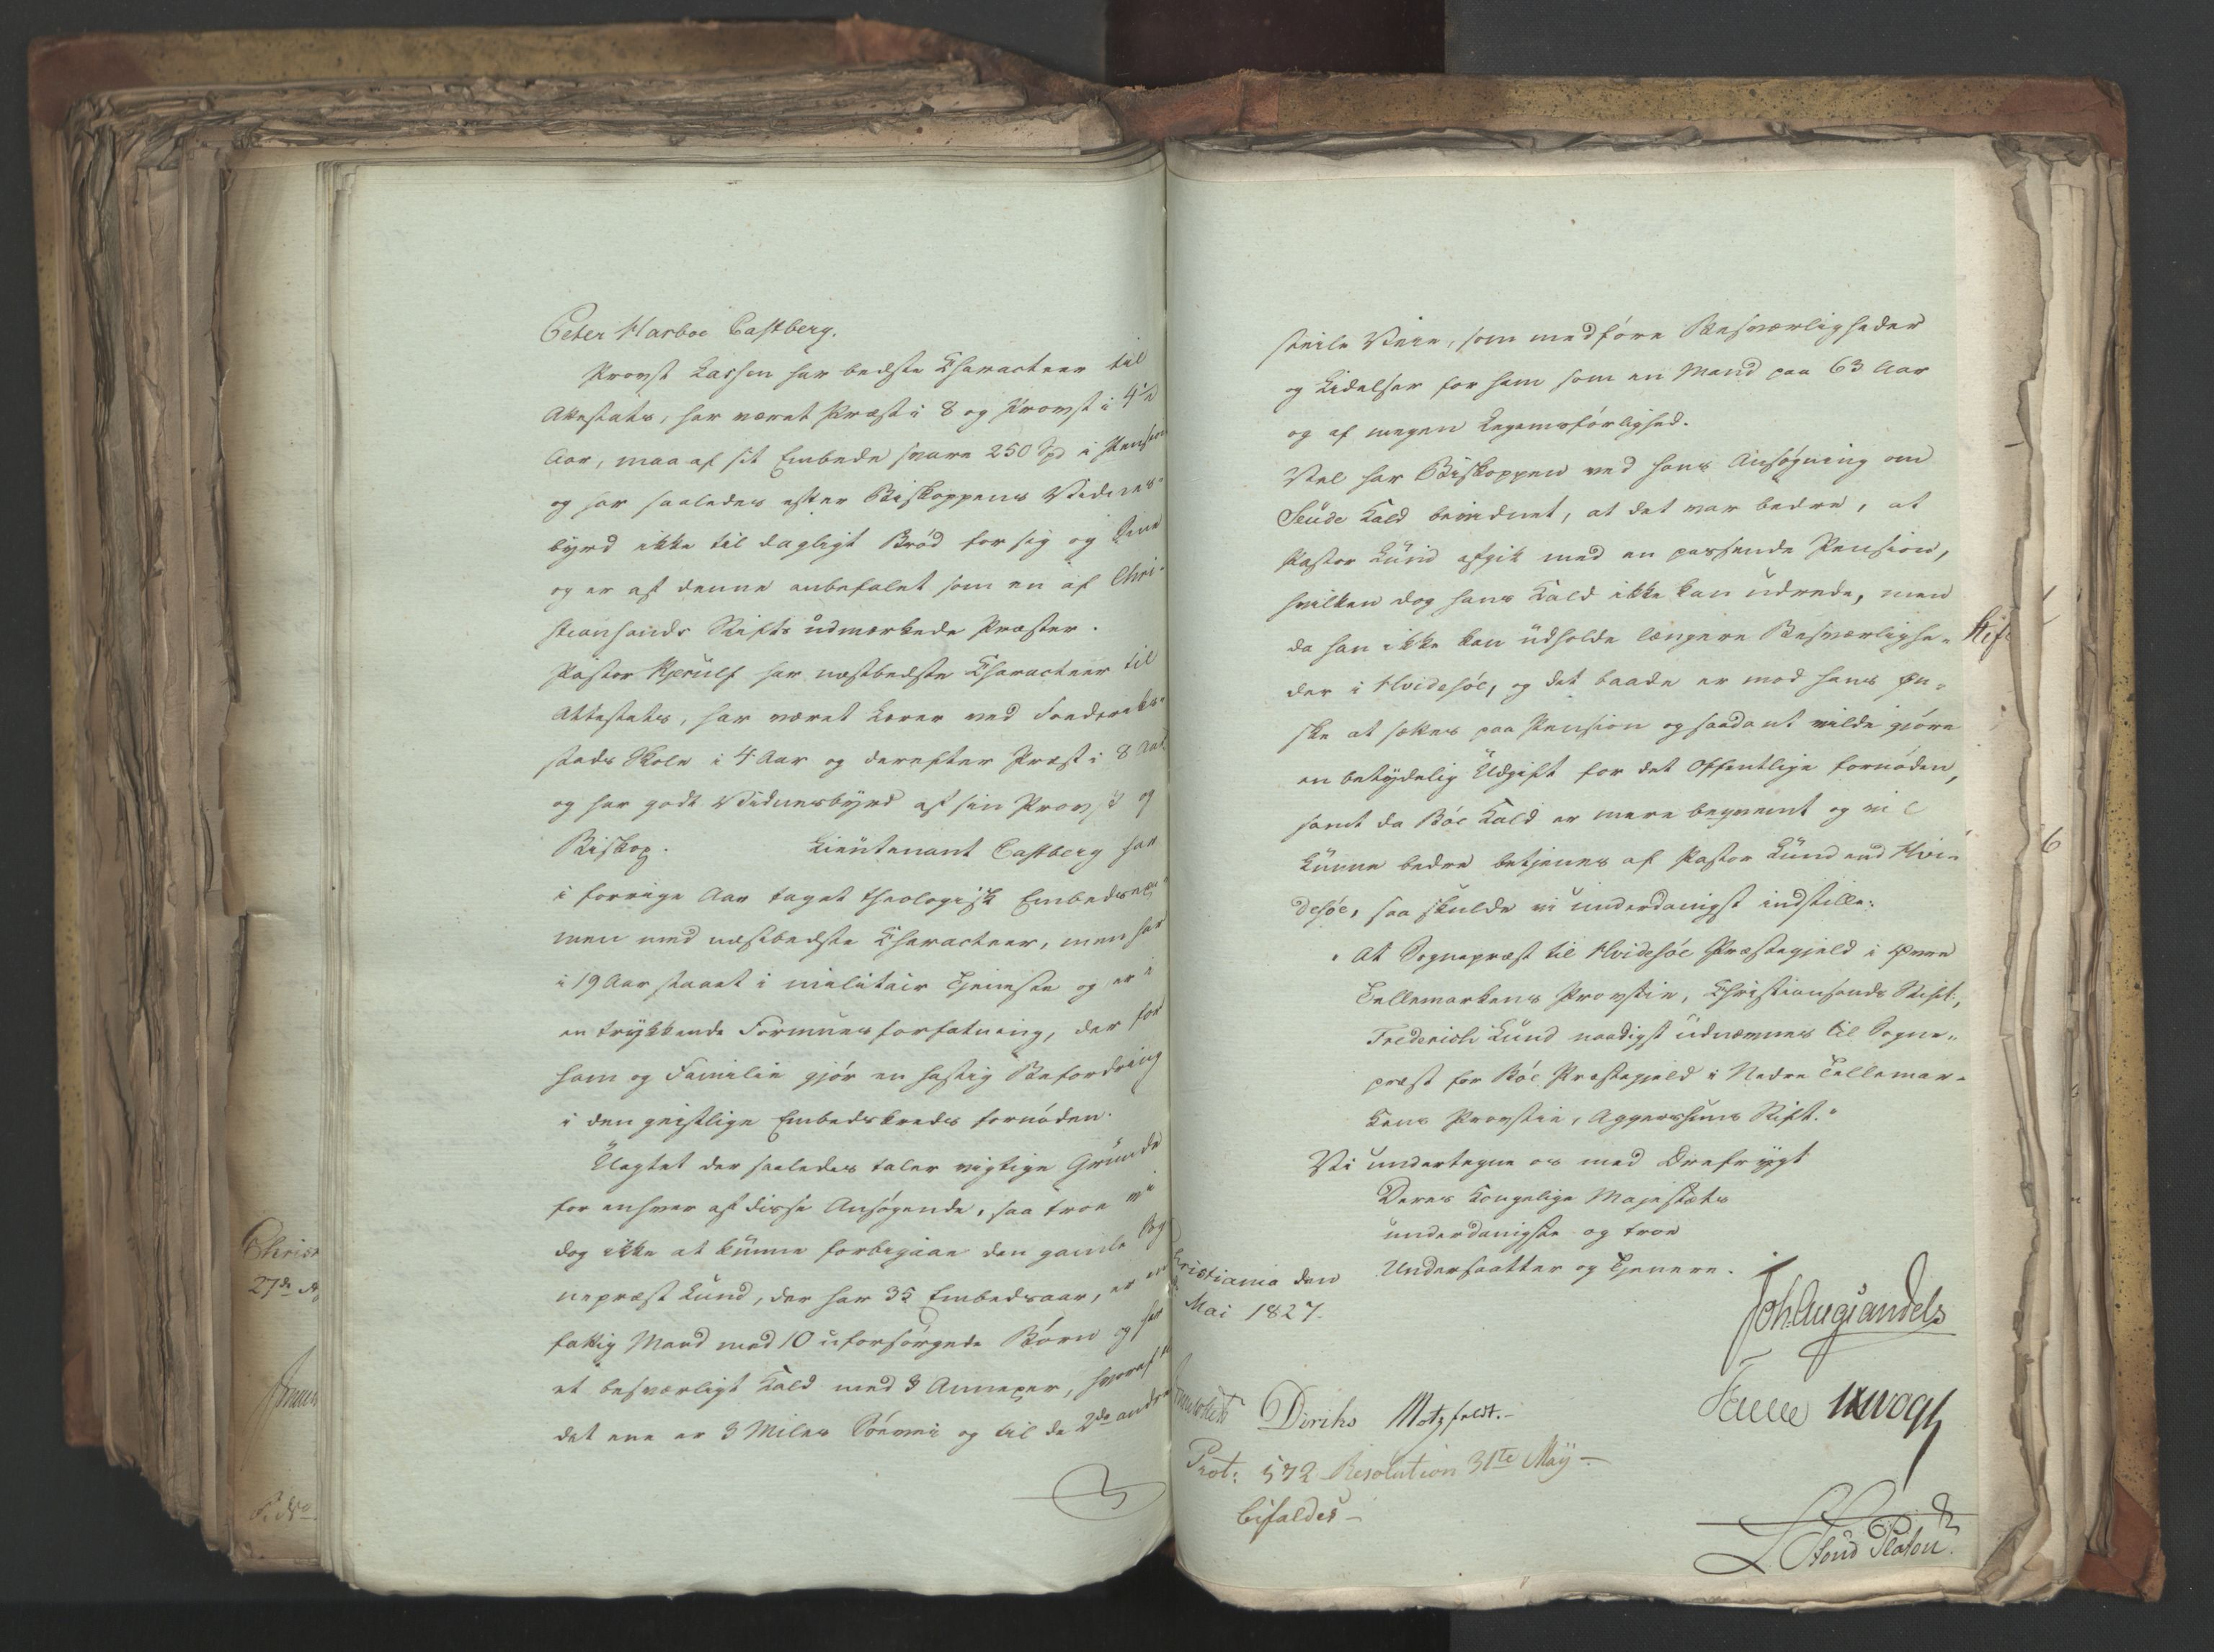 Peter Harboe Castberg.
Provst Lassen har bedste Character til
Attestats, har været Præst i 8 og Provst i 4½
Aar, maa af sit Embede svare 250 Spd i Pension
og har saaledes efter Biskoppens Vidnes-
byrd ikke til dagligt Brød for sig og Sine
og er af denne anbefalet som en af Chri-
stiansands Stifts udmærkede Præster.
Pastor Kjerulf har næstbedste Character til
Attestats, har været Lærer ved Frederiks-
stads Skole i 4 Aar og derefter Præst i 8 Aar
og har godt Vidnesbyrd af sin Provst og
Biskop. Lieutenant Castberg har
i forrige Aar taget theologisk Embedsexa-
men med næstbedste Character, men har
i 19 Aar staaet i militair Tjeneste og er i
en trykkende Formuesforfatning, der for
ham og Familie gjør en hastig Befordring
i den geistlige Embedskreds fornøden.
Uagtet der saaledes taler vigtige Grunde
for enhver af disse Ansøgende, saa troe vi
dog ikke at kunne forbigaae den gamle Sog-
nepræst Lund, der har 35 Embedsaar, er en
fattig Mand med 10 uforsørgede Børn og har
et besværligt Kald med 3 Annexer, hvoraf til
det ene er 3 Miles Søevei og til de 2de andre
steile Veie, som medføre Besværligheder
og Lidelser for ham som en Mand paa 63 Aar
og af megen Legemsførlighed.
Vel har Biskoppen ved hans Ansøgning om
Seude Kald bevidnet, at det var bedre, at
Pastor Lund afgik med en passende Pension,
hvilken dog hans Kald ikke kan udrede, men
da han ikke kan udholde længere Besværlighe-
der i Hvidesøe, og det baade er mod hans Øn-
ske at sættes paa Pension og saadant vilde gjøre
en betydelig Udgift for det Offentlige fornøden,
samt da Bøe Kald er mere beqvemt og vil
kunne bedre betjenes af Pastor Lund end Hvi-
desøe, saa skulde vi underdanigst indstille:
"At Sognepræst til Hvidesøe Præstegjeld i Øvre
Tellemarkens Provstie, Christiansands Stift,
Frederich Lund naadigst udnævnes til Sogne-
præst for Bøe Præstegjeld i Nedre Tellemar-
kens Provstie, Aggershuus Stift."
Vi undertegne os med Ærefrygt
Deres Kongelige Majestæts
underdanigste og troe
Undersaatter og Tjenere.
Christiania den
Mai 1827.
Joh. Aug. Sandels
Diriks Motzfeldt.
Prot: 572 Resolution 31te May
bifaldes